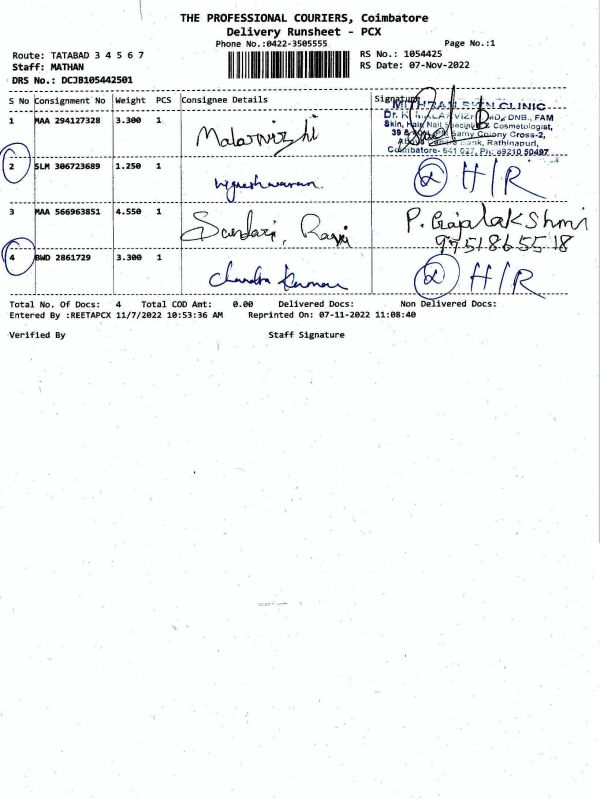 THE PROFESSIONAL COURIERS, Coimbatore
Delivery Runsheet - PCX
Phone No.:0422-3505555
Page No.:1
Route: TATABAD 3 4 5 6 7
RS No.: 1054425
Staff: MATHAN
RS Date: 07-Nov-2022
DRS No.: DCJB105442501
S No Consignment No Weight PCS Consignee Details Signature
1 MAA 294127328 3.300 1 Malarvizhi
MITHRAN SKIN CLINIC
MD, DNB., FAM
Skin, Hair, Nail Specialist & Cosmetologist,
Samy Colony Cross-2,
Bank, Rathinapuri,
Coimbatore- 641 027, Ph: 89210 50497
2 SLM 306723689 1.250 1 Vigneshwaran H/R
3 MAA 566963851 4.550 1 Sundari, P. Rajalakshmi
9751865518
4 BWD 2861729 3.300 1 Chandra Kumar H/R
Total No. Of Docs: 4 Total COD Amt: 0.00 Delivered Docs: Non Delivered Docs:
Entered By :REETAPCX 11/7/2022 10:53:36 AM Reprinted On: 07-11-2022 11:08:40
Verified By Staff Signature